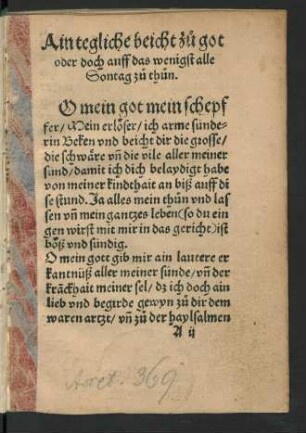 Ain tegliche beicht zů got
oder doch auff das wenigst alle
Sontag zů thůn.
O mein got mein schepf
fer/ Mein erlöser/ ich arme sunde-
rin Beken vnd beicht dir die grosse/
die schwäre vñ die vile aller meiner
sund/ damit ich dich belaydigt habe
von meiner kindthait an biß auff di
se stund. Ja alles mein thůn vnd las
sen vñ mein gantzes leben (so du ein
gen wirst mit mir in das gericht) ist
bōß vnd sündig.
O mein gott gib mir ain lautere er
kantnüß aller meiner sünde/ vñ der
krãckhait meiner sel/ dz ich doch ain
lieb vnd begirde gewyn zů dir dem
waren artzt/ vñ zů der haylsalmen
A ij
369